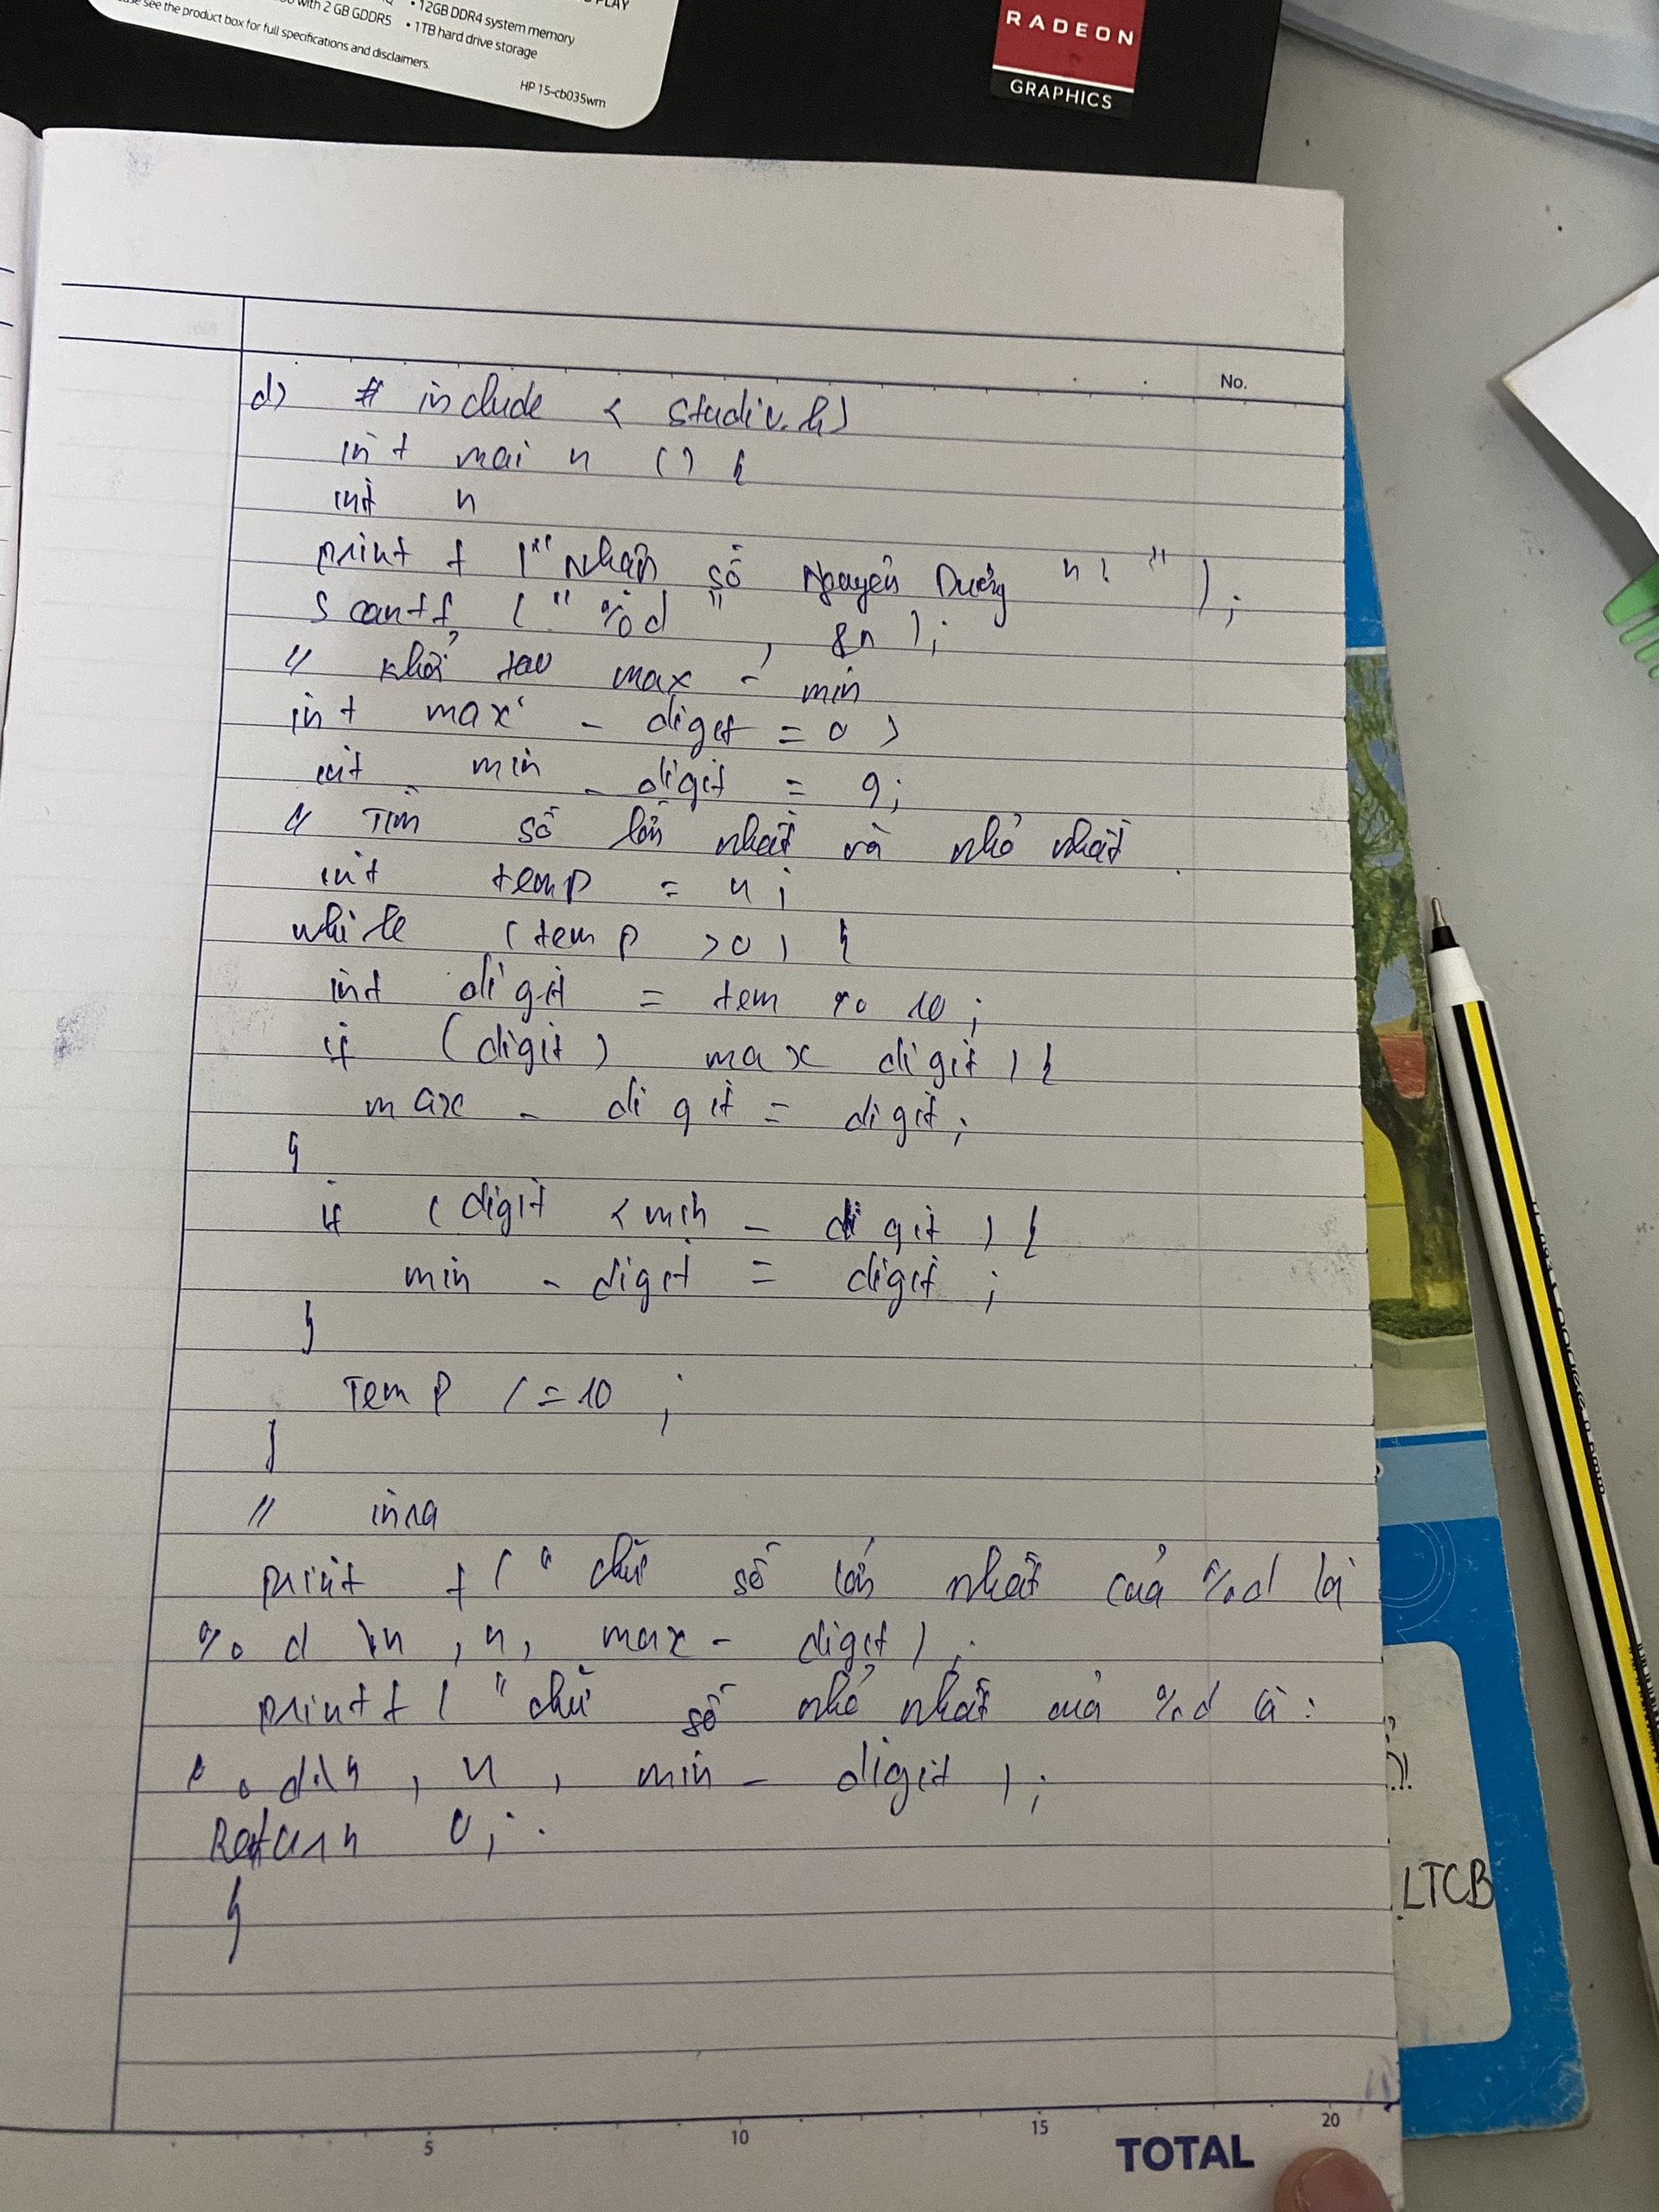 PLAY
with 2 GB GDDR5 • 12GB DDR4 system memory
• 1TB hard drive storage
see the product box for full specifications and disclaimers.
HP 15-cb035wm
RADEON
GRAPHICS
No.
d) # include < studiv.h)
int mai n () {
int n
print f ("Nhập số Nguyên Dương n: ");
Scantf ("%d", &n);
// khởi tạo max - min
int max - diget = 0;
int min - digit = 9;
// Tìm số lớn nhất và nhỏ nhất
int temp = n;
while (tem p >0) {
int digit = tem % 10;
if (digit) max digit) {
max - digit = digit;
}
if (digit < min - digit) {
min - diget = digit;
}
Tem p /= 10;
}
// in ra
print f ("chữ số lớn nhất của %d là
%d \n, n, max - diget);
printf ("chữ số nhỏ nhất của %d là:
%d\n, n, min - digit);
Return 0;
}
LTCB
5 10 15 20
TOTAL